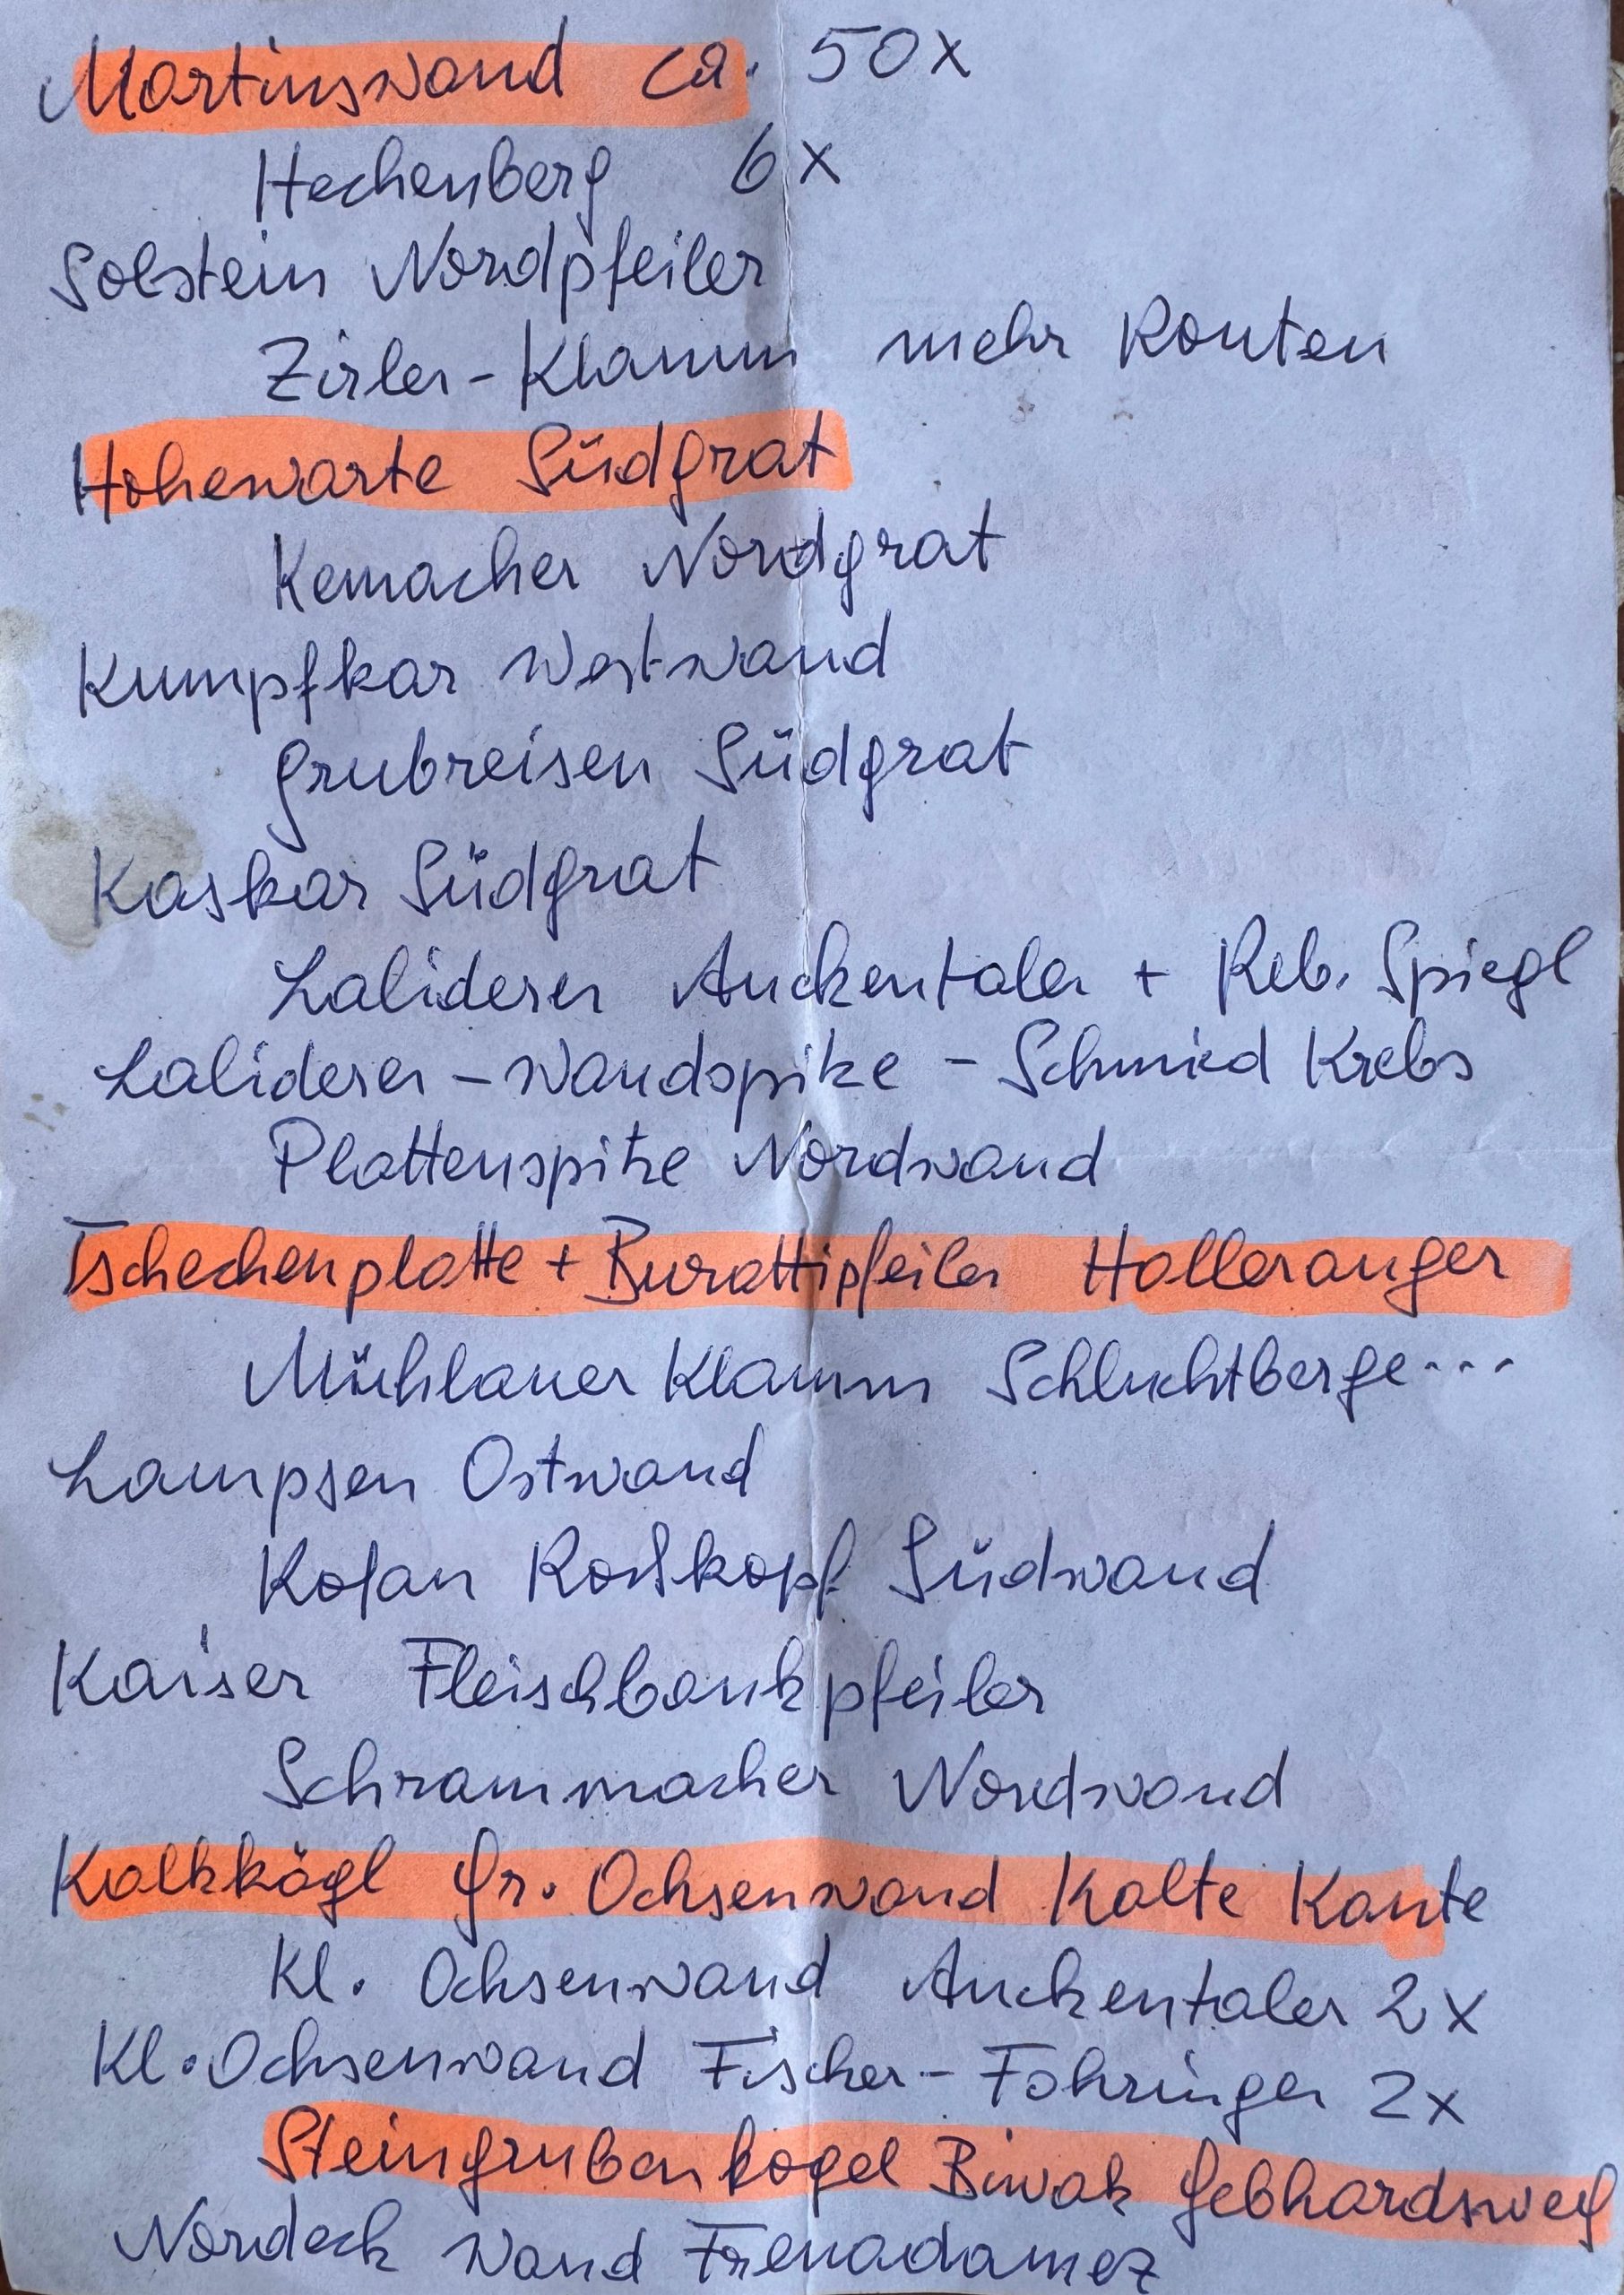 Martinswand ca. 50x
Hechenberg 6x
Solstein Nordpfeiler
Zirler-Klamm mehr Routen
Hohewarte Südgrat
Kemacher Nordgrat
Kumpfkar Westwand
Grubreisen Südgrat
Kaskar Südgrat
Laliderer Auckentaler + Reb. Spiegl
Laliderer - Wandspitze - Schmied Krebs
Plattenspitze Nordwand
Tschechenplatte + Burattipfeiler Halleranger
Mühlauer Klamm Schluchtberge...
Lampsen Ostwand
Rofan Roßkopf Südwand
Kaiser Fleischbankpfeiler
Schrammacher Nordwand
Kalkkögl Gr. Ochsenwand Kalte Kante
Kl. Ochsenwand Auckentaler 2x
Kl. Ochsenwand Fischer - Fohringer 2x
Steingrubenkogel Biwak Gebhardsweg
Nordeck Wand Frenademez